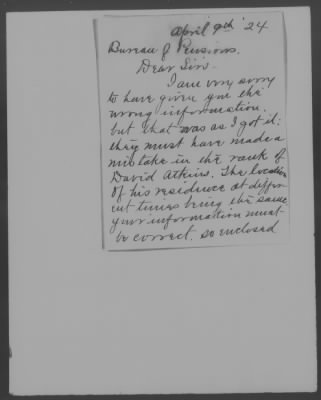 April 9th '24
Bureau of Pensions.
Dear Sirs-
I am very sorry
to have given you the
wrong information.
but that was as I got it:
they must have made a
mistake in the rank of
David Atkins. The location
of his residence at differ-
ent times being the same
your information must
be correct. so enclosed